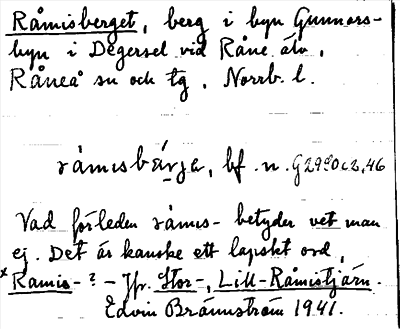 Råmisberget, berg i byn Gunnars-
byn i Degersel vid Råne älv,
Råneå sn och tg, Norrb. l.
råmısbärje, bf. n.
Vad förleden råmıs- betyder vet man
ej. Det är kanske ett lapskt ord,
*Ramis-? - Jfr. Stor-, Lill-Råmistjärn.
Edvin Brännström 1941.